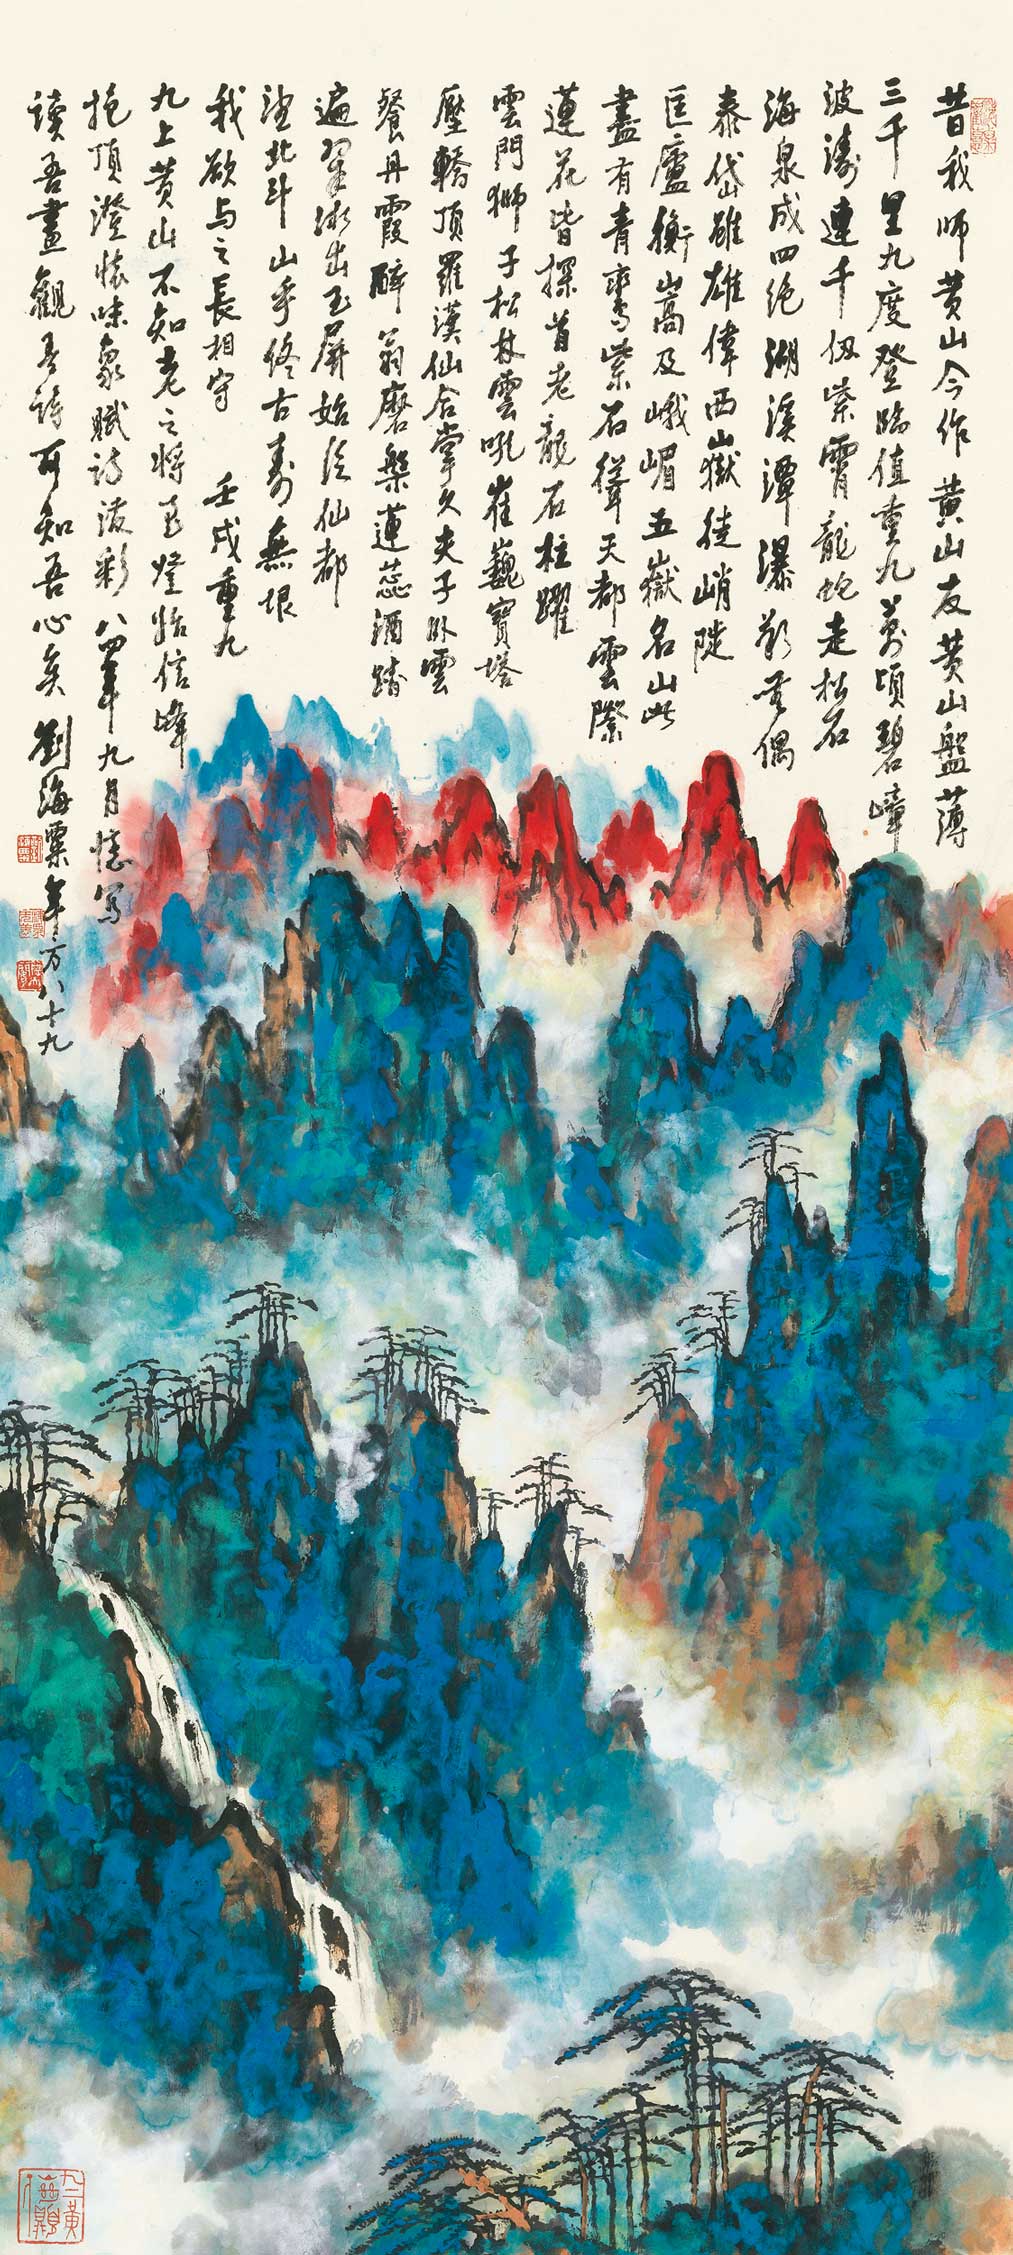 昔我师黄山今作黄山友黄山盤薄
三千里九度登臨值重九萬頃碧嶂
波濤連千仞紫霄龍蛇走松石
海泉成四绝湖溪潭瀑
泰岱雖雄偉西嶽徒峭陡
匡廬衡嵩及峨嵋五嶽名山此
盡有青鸾紫石聳天都雲際
蓮花皆探首老龍石柱躍
雲門狮子松林雲吼崔巍寶塔
壓轎頂羅漢仙合掌久夫子卧雲
餐丹霞醉翁磨槃蓮蕊酒踏
遍翠微出玉屏始仙都
望北斗山乎终古寿無垠
我欲与之長相守 壬戌重九
九上黄山不知老之将至燈始信峰
抱頂澄懷味象賦詩潑彩八四年九月憶写
读吾畫觀吾詩可知吾心矣 劉海粟年方八十九